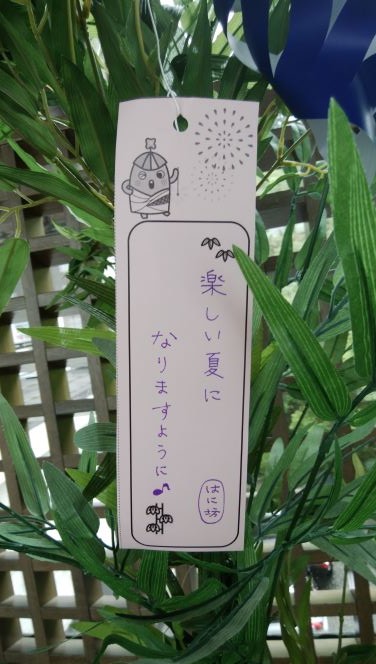 楽しい夏に
なりますように♪
はに坊